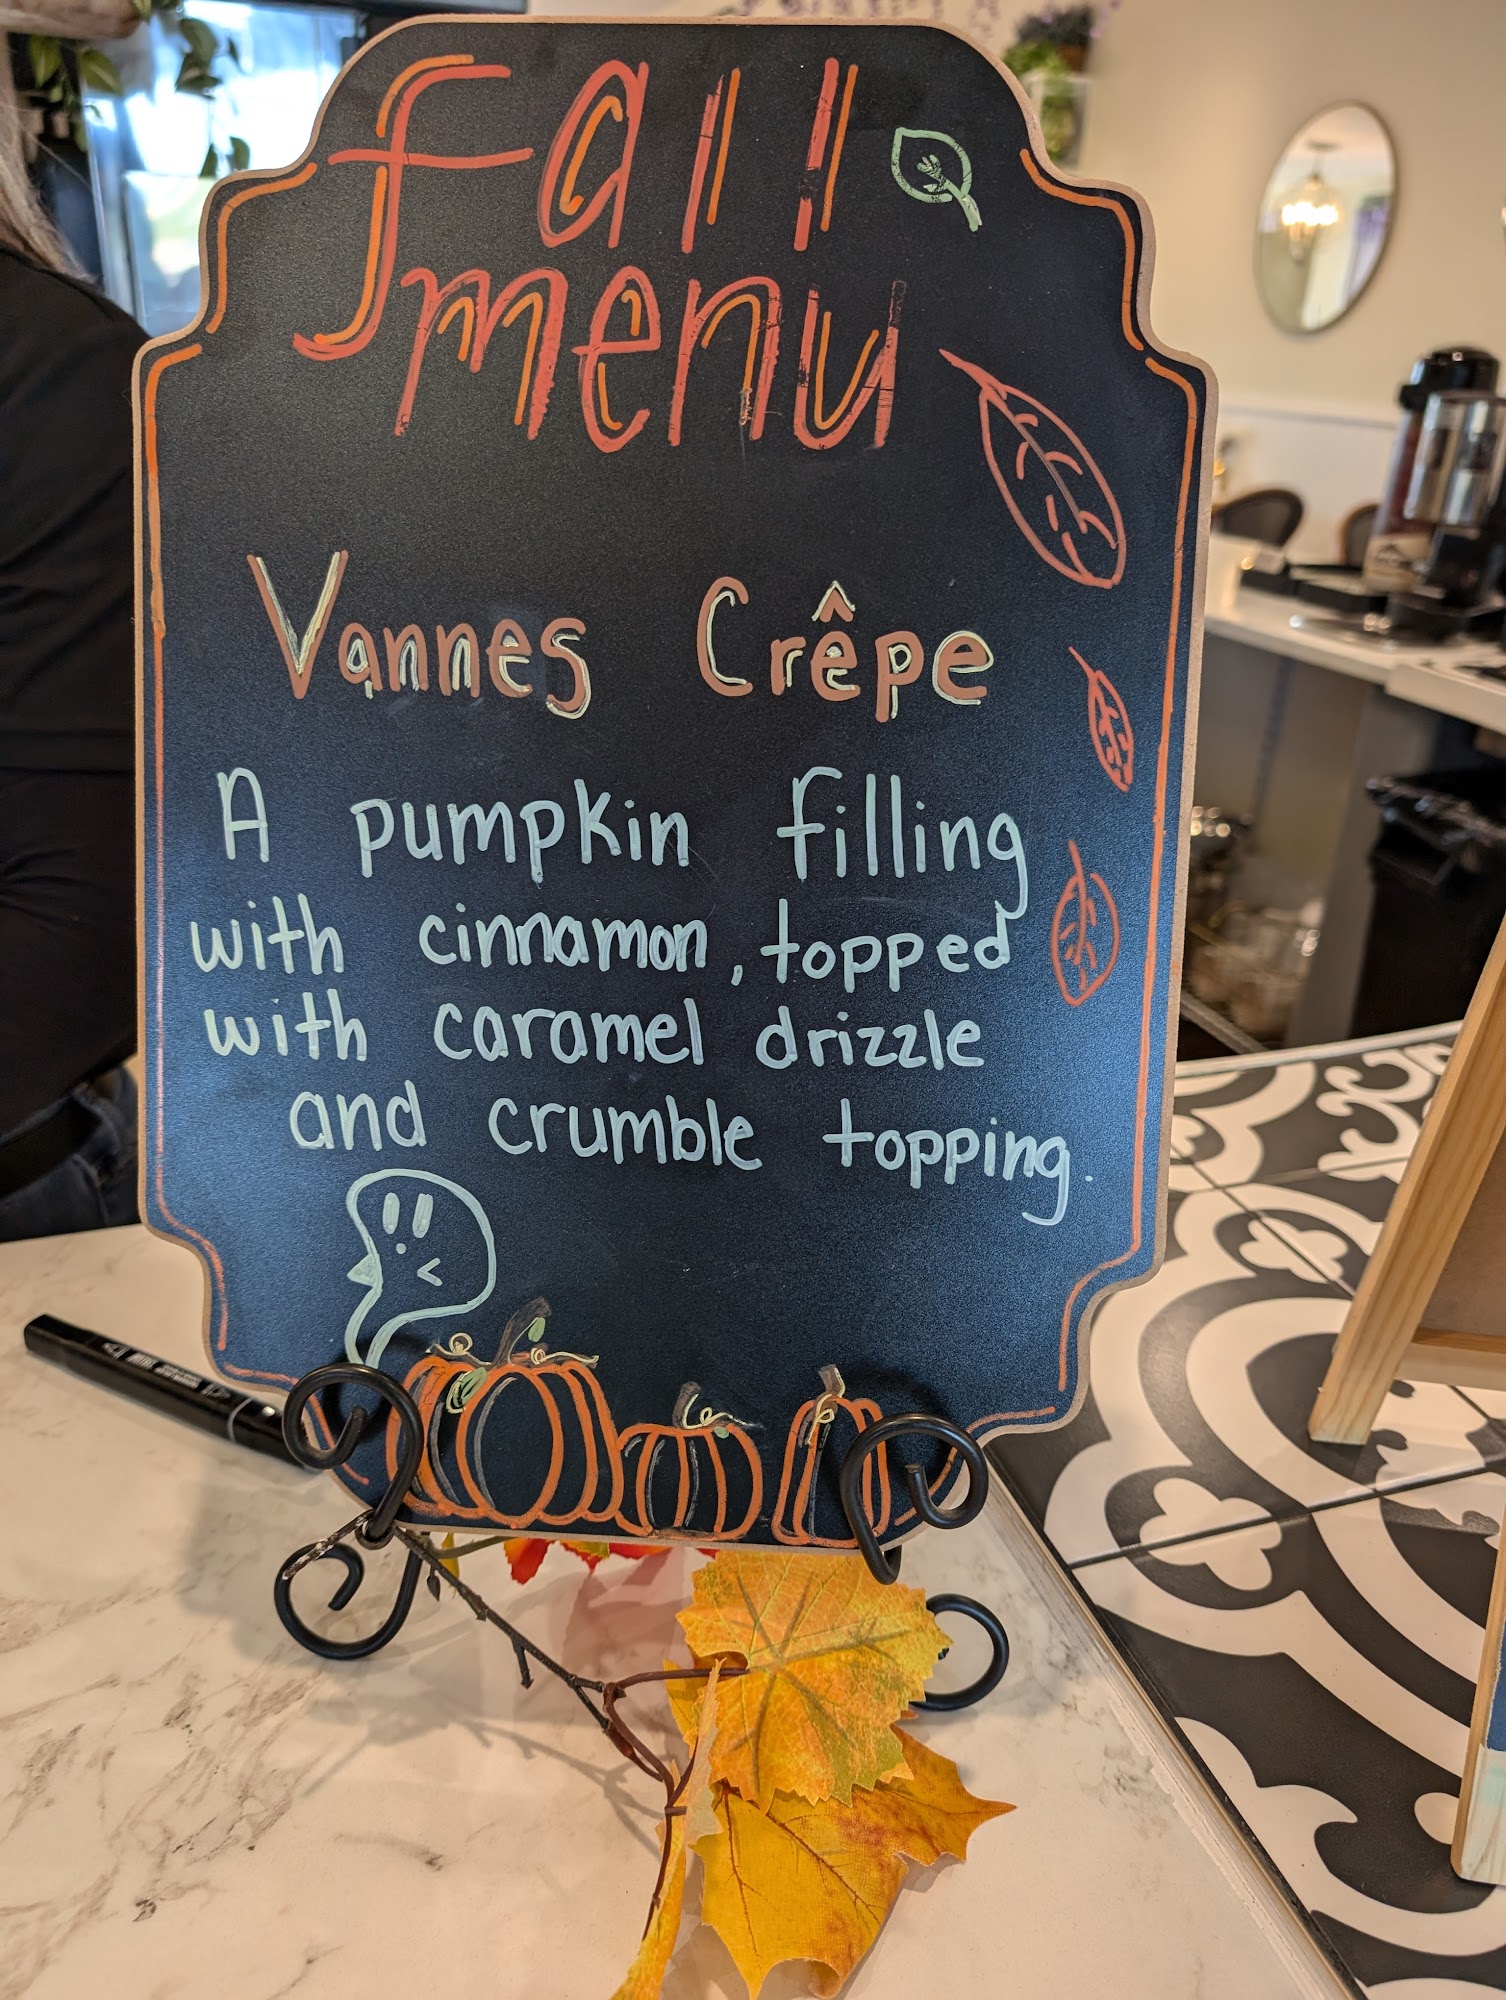 Fall
menu
Vannes Crêpe
A pumpkin filling
with cinnamon, topped
with caramel drizzle
and crumble topping.